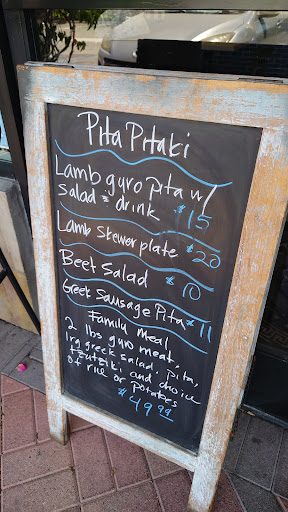 Pita Pitaki
Lamb gyro pita w/
salad & drink $15
Lamb Skewer plate $20
Beet Salad $10
Greek Sausage Pita $11
Family meal
2 lbs gyro meat,
1rg greek salad, pita,
tzutziki and choice
of rice or potatoes
$49.99